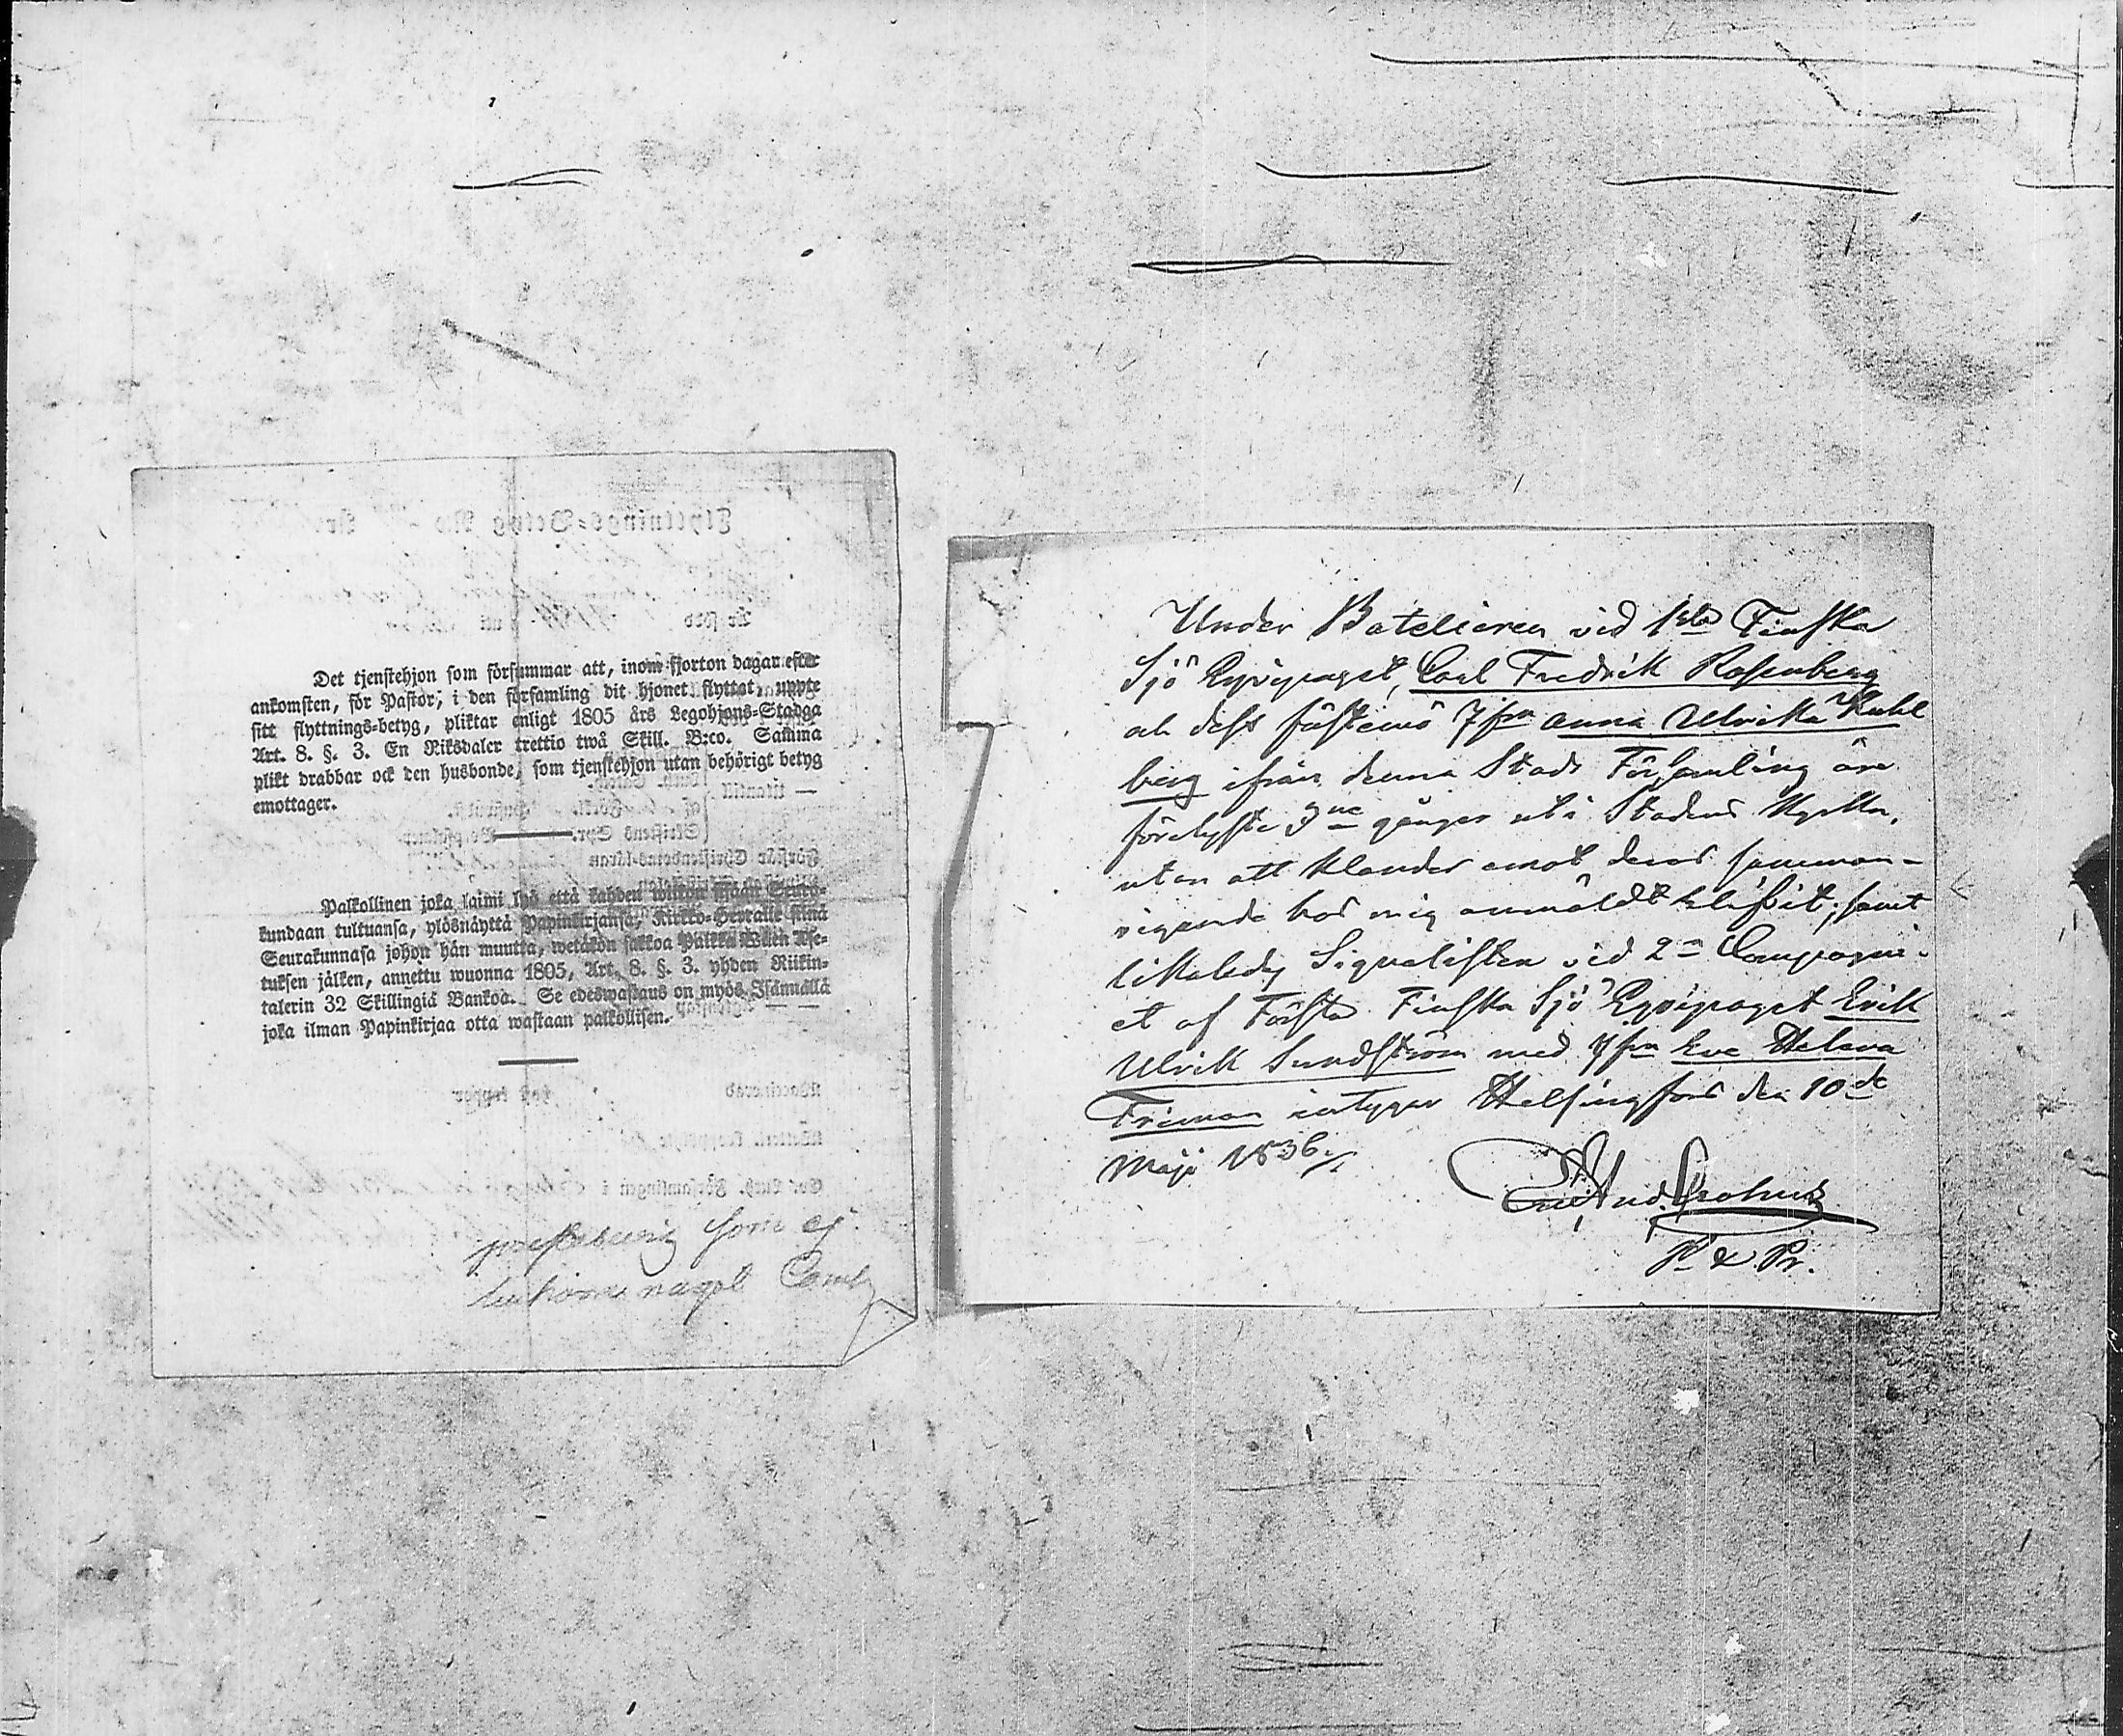 Det tjenstehjon som försummar att, inom fjorton dagar efter
ankomsten, för Pastor, i den församling dit hjonet flyttat, uppte
sitt flyttnings-betyg, pliktar enligt 1805 års Legohjons-Stadga
Art. 8. §. 3. En Riksdaler trettio twå Skill. B:co. Samma
plikt drabbar ock den husbonde, som tjenstehjon utan behörigt betyg
emottager.
Palkollinen joka laimi lyö että kahden wiikon sisään Seura-
kundaan tultuansa, ylösnäyttä Papinkirjansa, Kirkko-Herralle siinä
Seurakunnasa johon hän muutta, wetäkön sakkoa Palkka Wäen Ase-
tuksen jälken, annettu wuonna 1805, Art. 8. §. 3. yhden Riikin-
talerin 32 Skillingiä Bankoa. Se edeswastaus on myös Isännällä
joka ilman Papinkirjaa otta wastaan palkollisen.
som ej
något
Under Batelieren vid 1sta Finska
Sjö Eqvipaget, Carl Fredrik Rosenberg
och dess fästemö Jfrn Anna Ulrika Kuhl
berg ifrån denna Stads Församling äro
förelyste 3ne gånger uti Stadens Kyrka,
utan att klander emot deras samman-
vigande hos mig anmäldt blifvit; samt
likaledes Signalisten vid 2a Compagni-
et af Första Finska Sjö Eqvipaget Erik
Ulrik Sundström med Jfrn Eva Helena
Friman intygar Helsingfors den 10de
Maji 1836./.
P. & Pr.